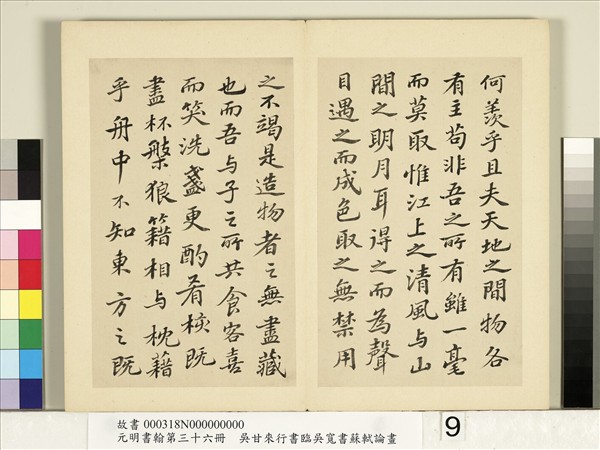 何羨乎且夫天地之間物各
有主苟非吾之所有雖一毫
而莫取惟江上之清風與山
間之明月耳得之而為聲
目遇之而成色取之無禁用
之不竭是造物者之無盡藏
也而吾与子之所共食客喜
而笑洗盞更酌肴核既
盡杯槃狼籍相与枕藉
乎舟中不知東方之既
故書 000318N000000000
元明書翰第三十六冊 吳甘來行書臨吳寬書蘇軾論畫
9